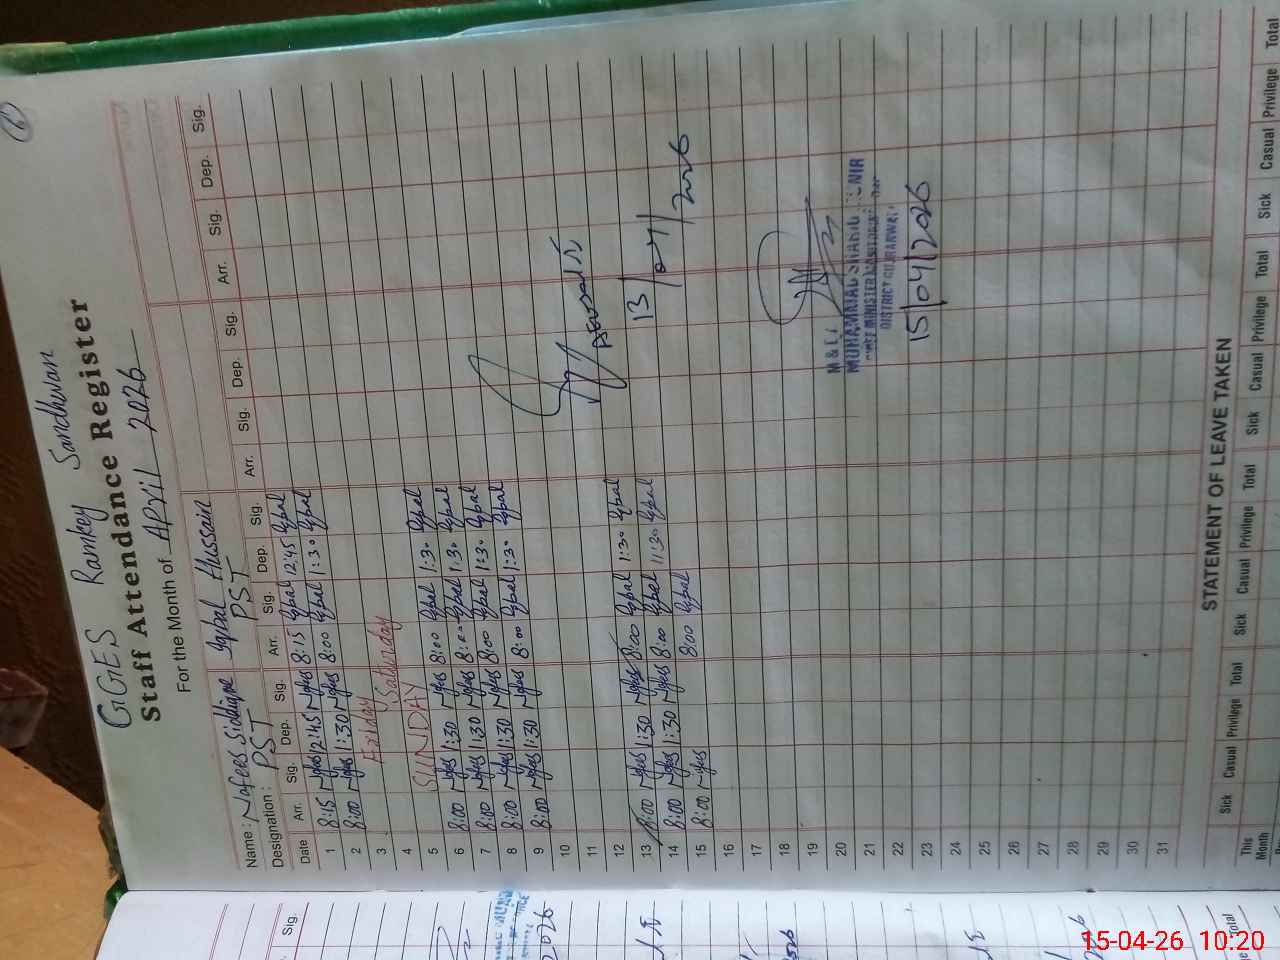 GGES Ramkey Sandhwan
Staff Attendance Register
For the Month of April 2026
Name: Nafees Siddique Iqbal Hussain
Designation: PST PST
Date Arr. Sig. Dep. Sig. Arr. Sig. Dep. Sig. Arr. Sig. Dep. Sig. Arr. Sig. Dep. Sig.
1 8:15 Nafees 12:45 Nafees 8:15 Iqbal 12:45 Iqbal
2 8:00 Nafees 1:30 Nafees 8:00 Iqbal 1:30 Iqbal
3 Friday
4 Saturday
5 SUNDAY
6 8:00 Nafees 1:30 Nafees 8:00 Iqbal 1:30 Iqbal
7 8:00 Nafees 1:30 Nafees 8:00 Iqbal 1:30 Iqbal
8 8:00 Nafees 1:30 Nafees 8:00 Iqbal 1:30 Iqbal
9 8:00 Nafees 1:30 Nafees 8:00 Iqbal 1:30 Iqbal
10
11
12
13 8:00 Nafees 1:30 Nafees 8:00 Iqbal 1:30 Iqbal
14 8:00 Nafees 1:30 Nafees 8:00 Iqbal 11:30 Iqbal
15 8:00 Nafees 8:00 Iqbal
16
17
18
19
20
21
22
23
24
25
26
27
28
29
30
31
13/04/2026
MUHAMMAD
DISTRICT GUJRANWALA
15/04/2026
STATEMENT OF LEAVE TAKEN
Sick Casual Privilege Total Sick Casual Privilege Total Sick Casual Privilege Total Sick Casual Privilege Total
This Month
Sig.
2026
Total
15-04-26 10:20